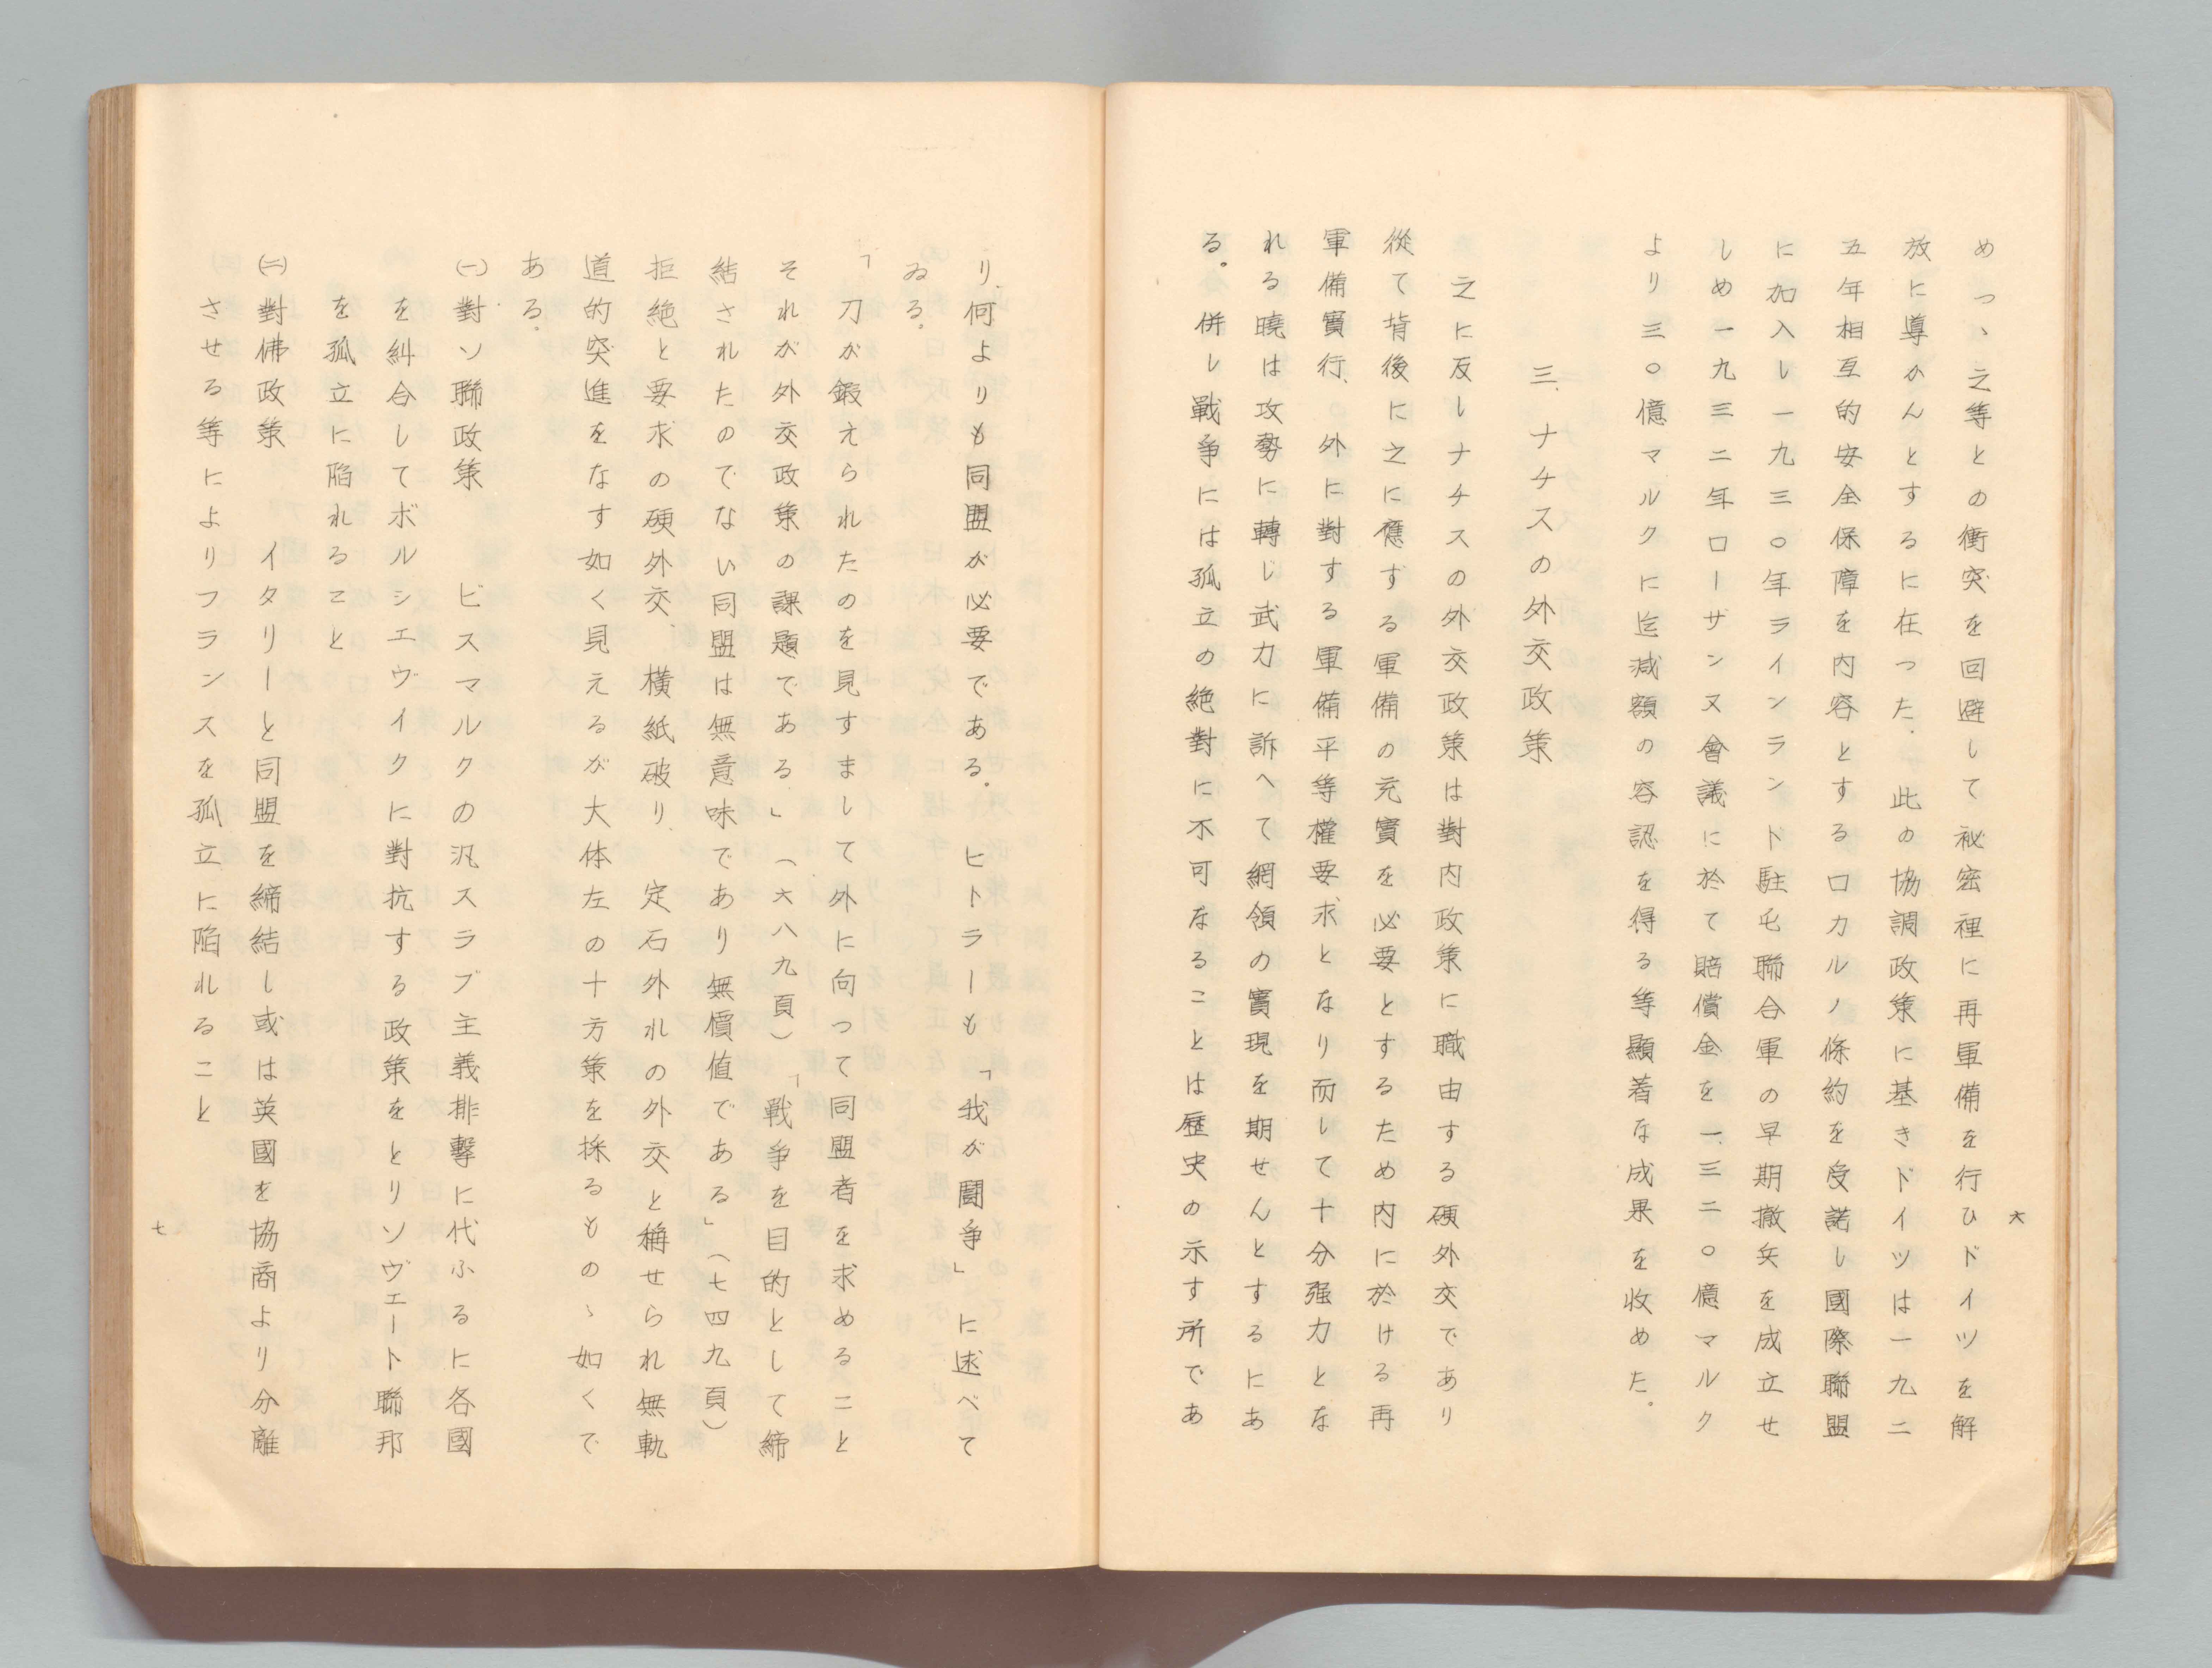 六
めつゝ之等との衝突を回避して祕密裡に再軍備を行ひドイツを解
放に導かんとするに在つた．此の協調政策に基きドイツは一九二
五年相互的安全保障を内容とするロカルノ條約を受諾し國際聯盟
に加入し一九三〇年ラインランド駐屯聯合軍の早期撤兵を成立せ
しめ一九三二年ローザンヌ會議に於て賠償金を一、三二〇億マルク
より三〇億マルクに迄減額の容認を得る等顯着な成果を收めた。
三、ナチスの外交政策
之に反しナチスの外交政策は對内政策に職由する硬外交であり
從て背後に之に應ずる軍備の充實を必要とするため内に於ける再
軍備實行、外に對する軍備平等權要求となり而して十分强力とな
れる曉は攻勢に轉じ武力に訴へて綱領の實現を期せんとするにあ
る。併し戦争には孤立の絶對に不可なることは歴史の示す所であ
り、何よりも同盟が必要である．ヒトラーも「我が闘争」に述べて
ゐる．
「刀が鍛えられたのを見すまして外に向って同盟者を求めること
それが外交政策の課題である」（六八九頁）「戦争を目的として締
結されたのでない同盟は無意味であり無價値である」（七四九頁）
拒絶と要求の硬外交、橫紙破り、定石外れの外交と稱せられ無軌
道的突進をなす如く見えるが大体左の十方策を採るものゝ如くで
ある．
㈠對ソ聯政策　ビスマルクの汎スラブ主義排撃に代ふるに各國
を糾合してボルシエヴイクに對抗する政策をとりソヴエート聯邦
を孤立に陷れること
㈡對佛政策　イタリーと同盟を締結し或は英國を協商より分離
させる等によりフランスを孤立に陷れること
七